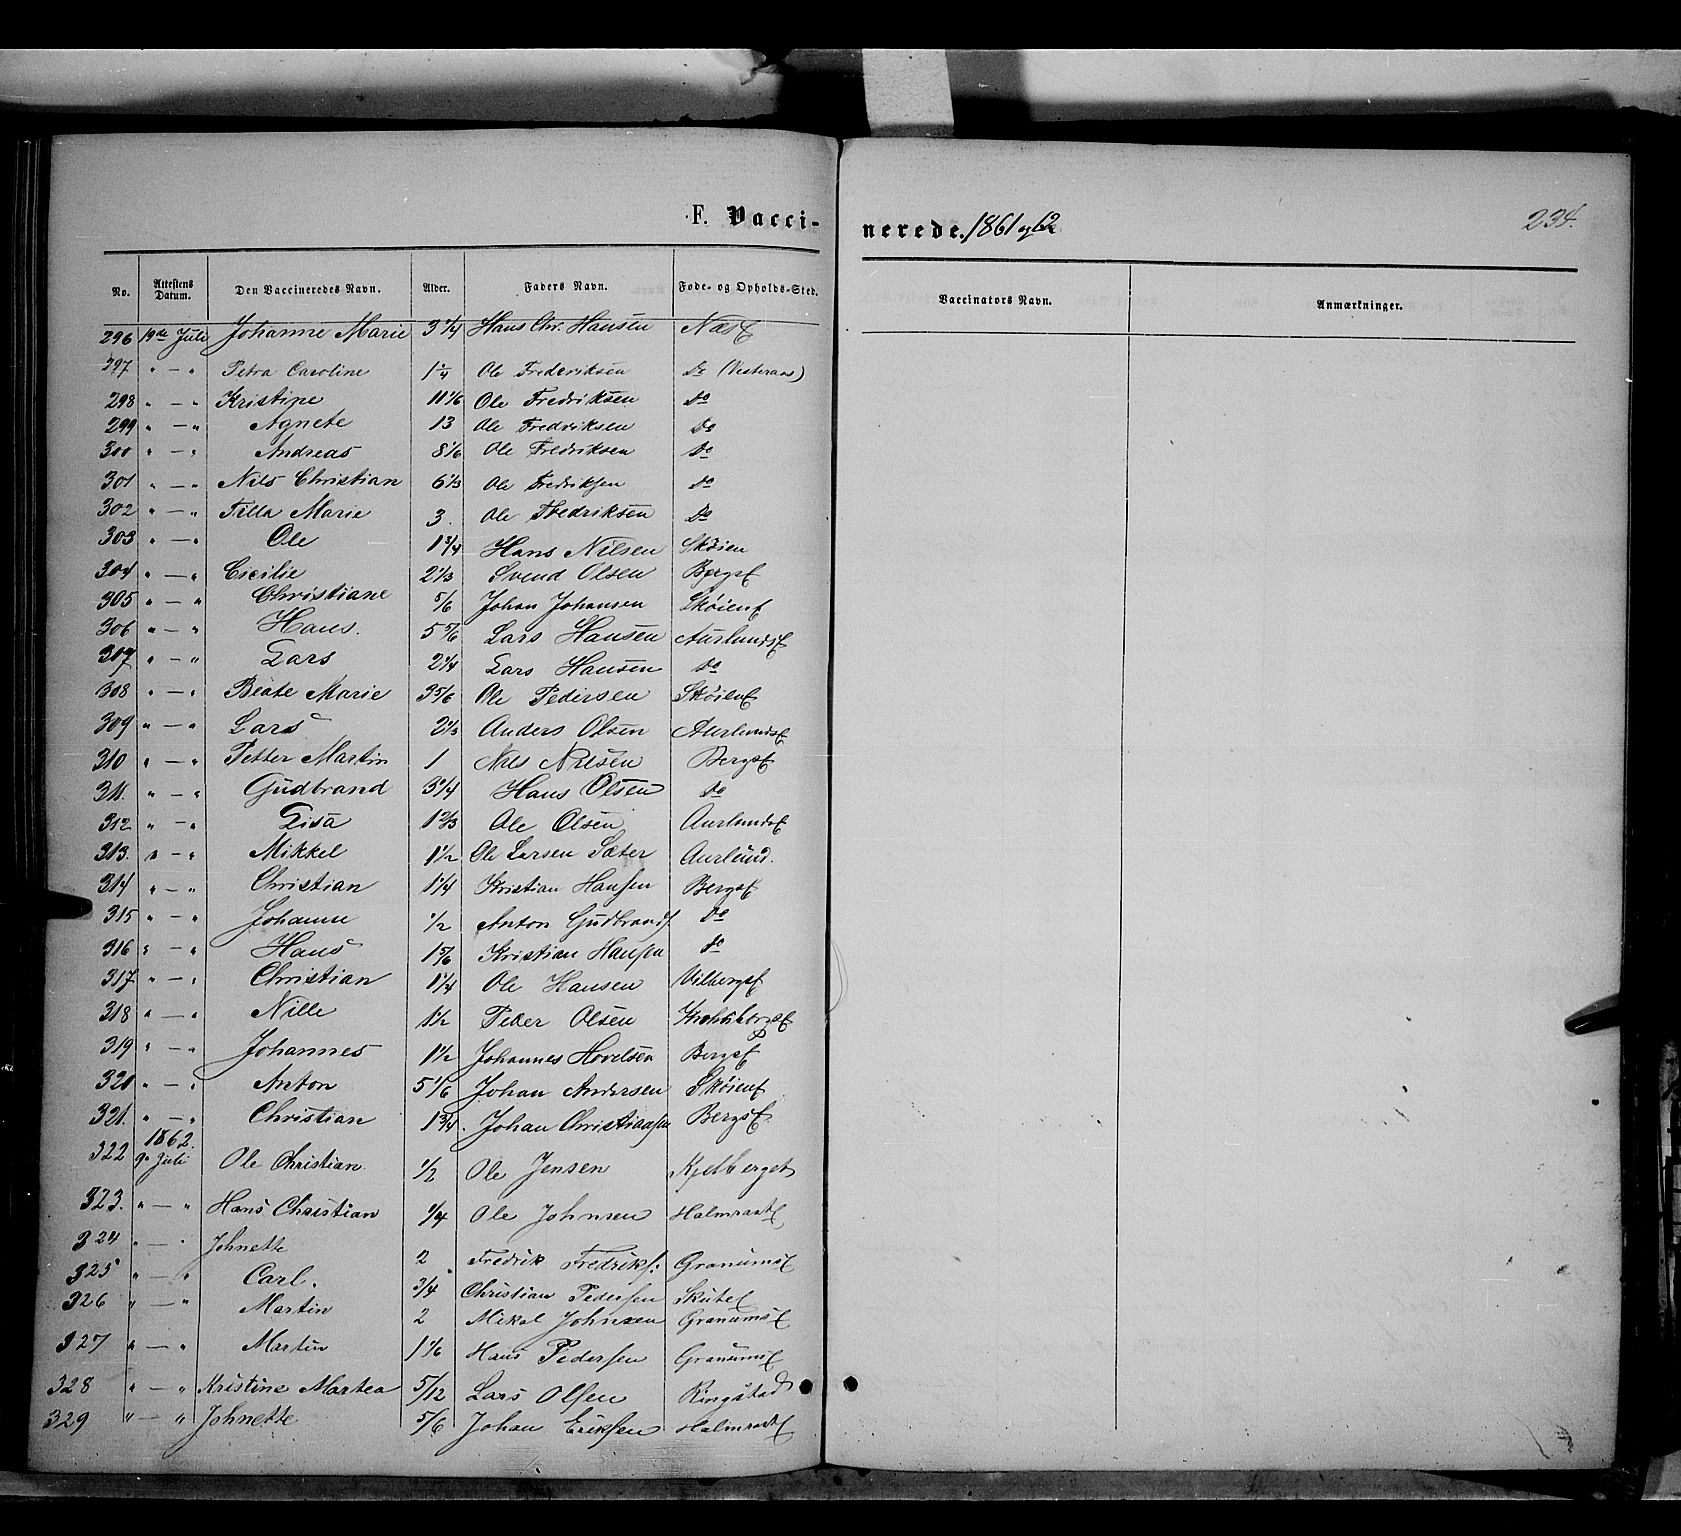 F. Vaccinerede. 1861 og 62
234.
No. Attestens Datum. Den Vaccineredes Navn. Alder. Faders Navn. Føde- og Opholds-Sted. Vaccinators Navn. Anmærkninger.
296 19de Juli Johanne Marie 3 1/4 Hans Chr. Hansen Næs
297 " — " Petra Caroline 1 1/4 Ole Frederiksen Do (Vesteraas)
298 " — " Kristine 11 1/6 Ole Fredriksen Do
299 " — " Agnete 13 Ole Fredriksen Do
300 " — " Andreas 8 1/6 Ole Fredriksen Do
301 " — " Nils Christian 6 1/3 Ole Fredriksen Do
302 " — " Tilla Marie 3. Ole Fredriksen Do
303 " — " Ole 1 3/4 Hans Nilsen Skøien
304 " — " Cicilie 2 1/3 Svend Olsen Bergsf
305 " — " Christiane 5/6 Johan Johansen Skøienf
306 " — " Hans. 5 5/6 Lars Hansen Aurlundsf
307 " — " Lars 2 1/4 Lars Hansen Do
308 " — " Beate Marie 3 5/6 Ole Pedersen Skøienf
309 " — " Lars 2 1/3 Anders Olsen Aurlundsf
310 " — " Petter Martin 1 Nils Nilsen Bergsf
311. " — " Gudbrand 3 1/4 Hans Olsen Do
312 " — " Lisa 1 2/3 Ole Olsen Aurlundsf
313. " — " Mikkel 1 1/2 Ole Larsen Sæter Aurlund.
314 " — " Christian 1 1/4 Kristian Hansen Bergsf
315 " — " Johanne 1/2 Anton Gudbrands. Do
316 " — " Hans 1 5/6 Kristian Hansen Do
317 " — " Christian 1 1/4 Ole Hansen Vilbergsf
318 " — " Nille 1 1/2 Peder Olsen
319 " — " Johannes 1 1/2 Johannes Hovelsen Bergsf
320 " — " Anton 5 1/6 Johan Andersen Skøienf
321. " — " Christian 1 3/4. Johan Christiansen Bergsf
1862.
322 9de Juli Ole Christian. 1/2 Ole Jensen Kjelberget
323. " — " Hans Christian 1/4 Ole Johnsen Halmraatf
324 " — " Johnette 2 Fredrik Fredriks: Granumsf
325 " — " Carl. 3/4 Christian Pedersen Skutef
326 " — " Martin 2 Mikal Johnsen Granumsf
327 " — " Martin 1 1/6 Hans Pedersen Granumsf
328 " — " Kristine Martea 5/12 Lars Olsen Ringstad
329 " — " Johnette 5/6 Johan Eriksen Halmraatf